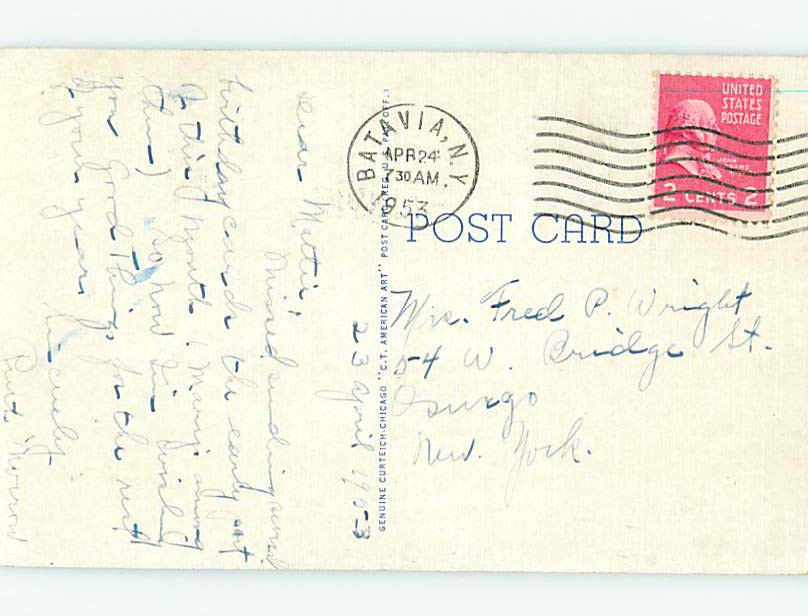 BATAVIA, N.Y.
APR 24
7 30 AM.
1953
UNITED
STATES
POSTAGE
JOHN
ADAMS
2 CENTS 2
POST CARD
Mrs. Fred P. Wright
54 W. Bridge St.
Oswego
New York.
GENUINE CURTEICH-CHICAGO "C.T. AMERICAN ART" POST CARD (REG. U.S. PAT. OFF.)
23 April 1953
Dear Mattie,
Missed sending several
birthday cards the early part
of this month. (Many among
them) So now I'm wishing
you good things for the rest
of your year.
Sincerely
Morrow